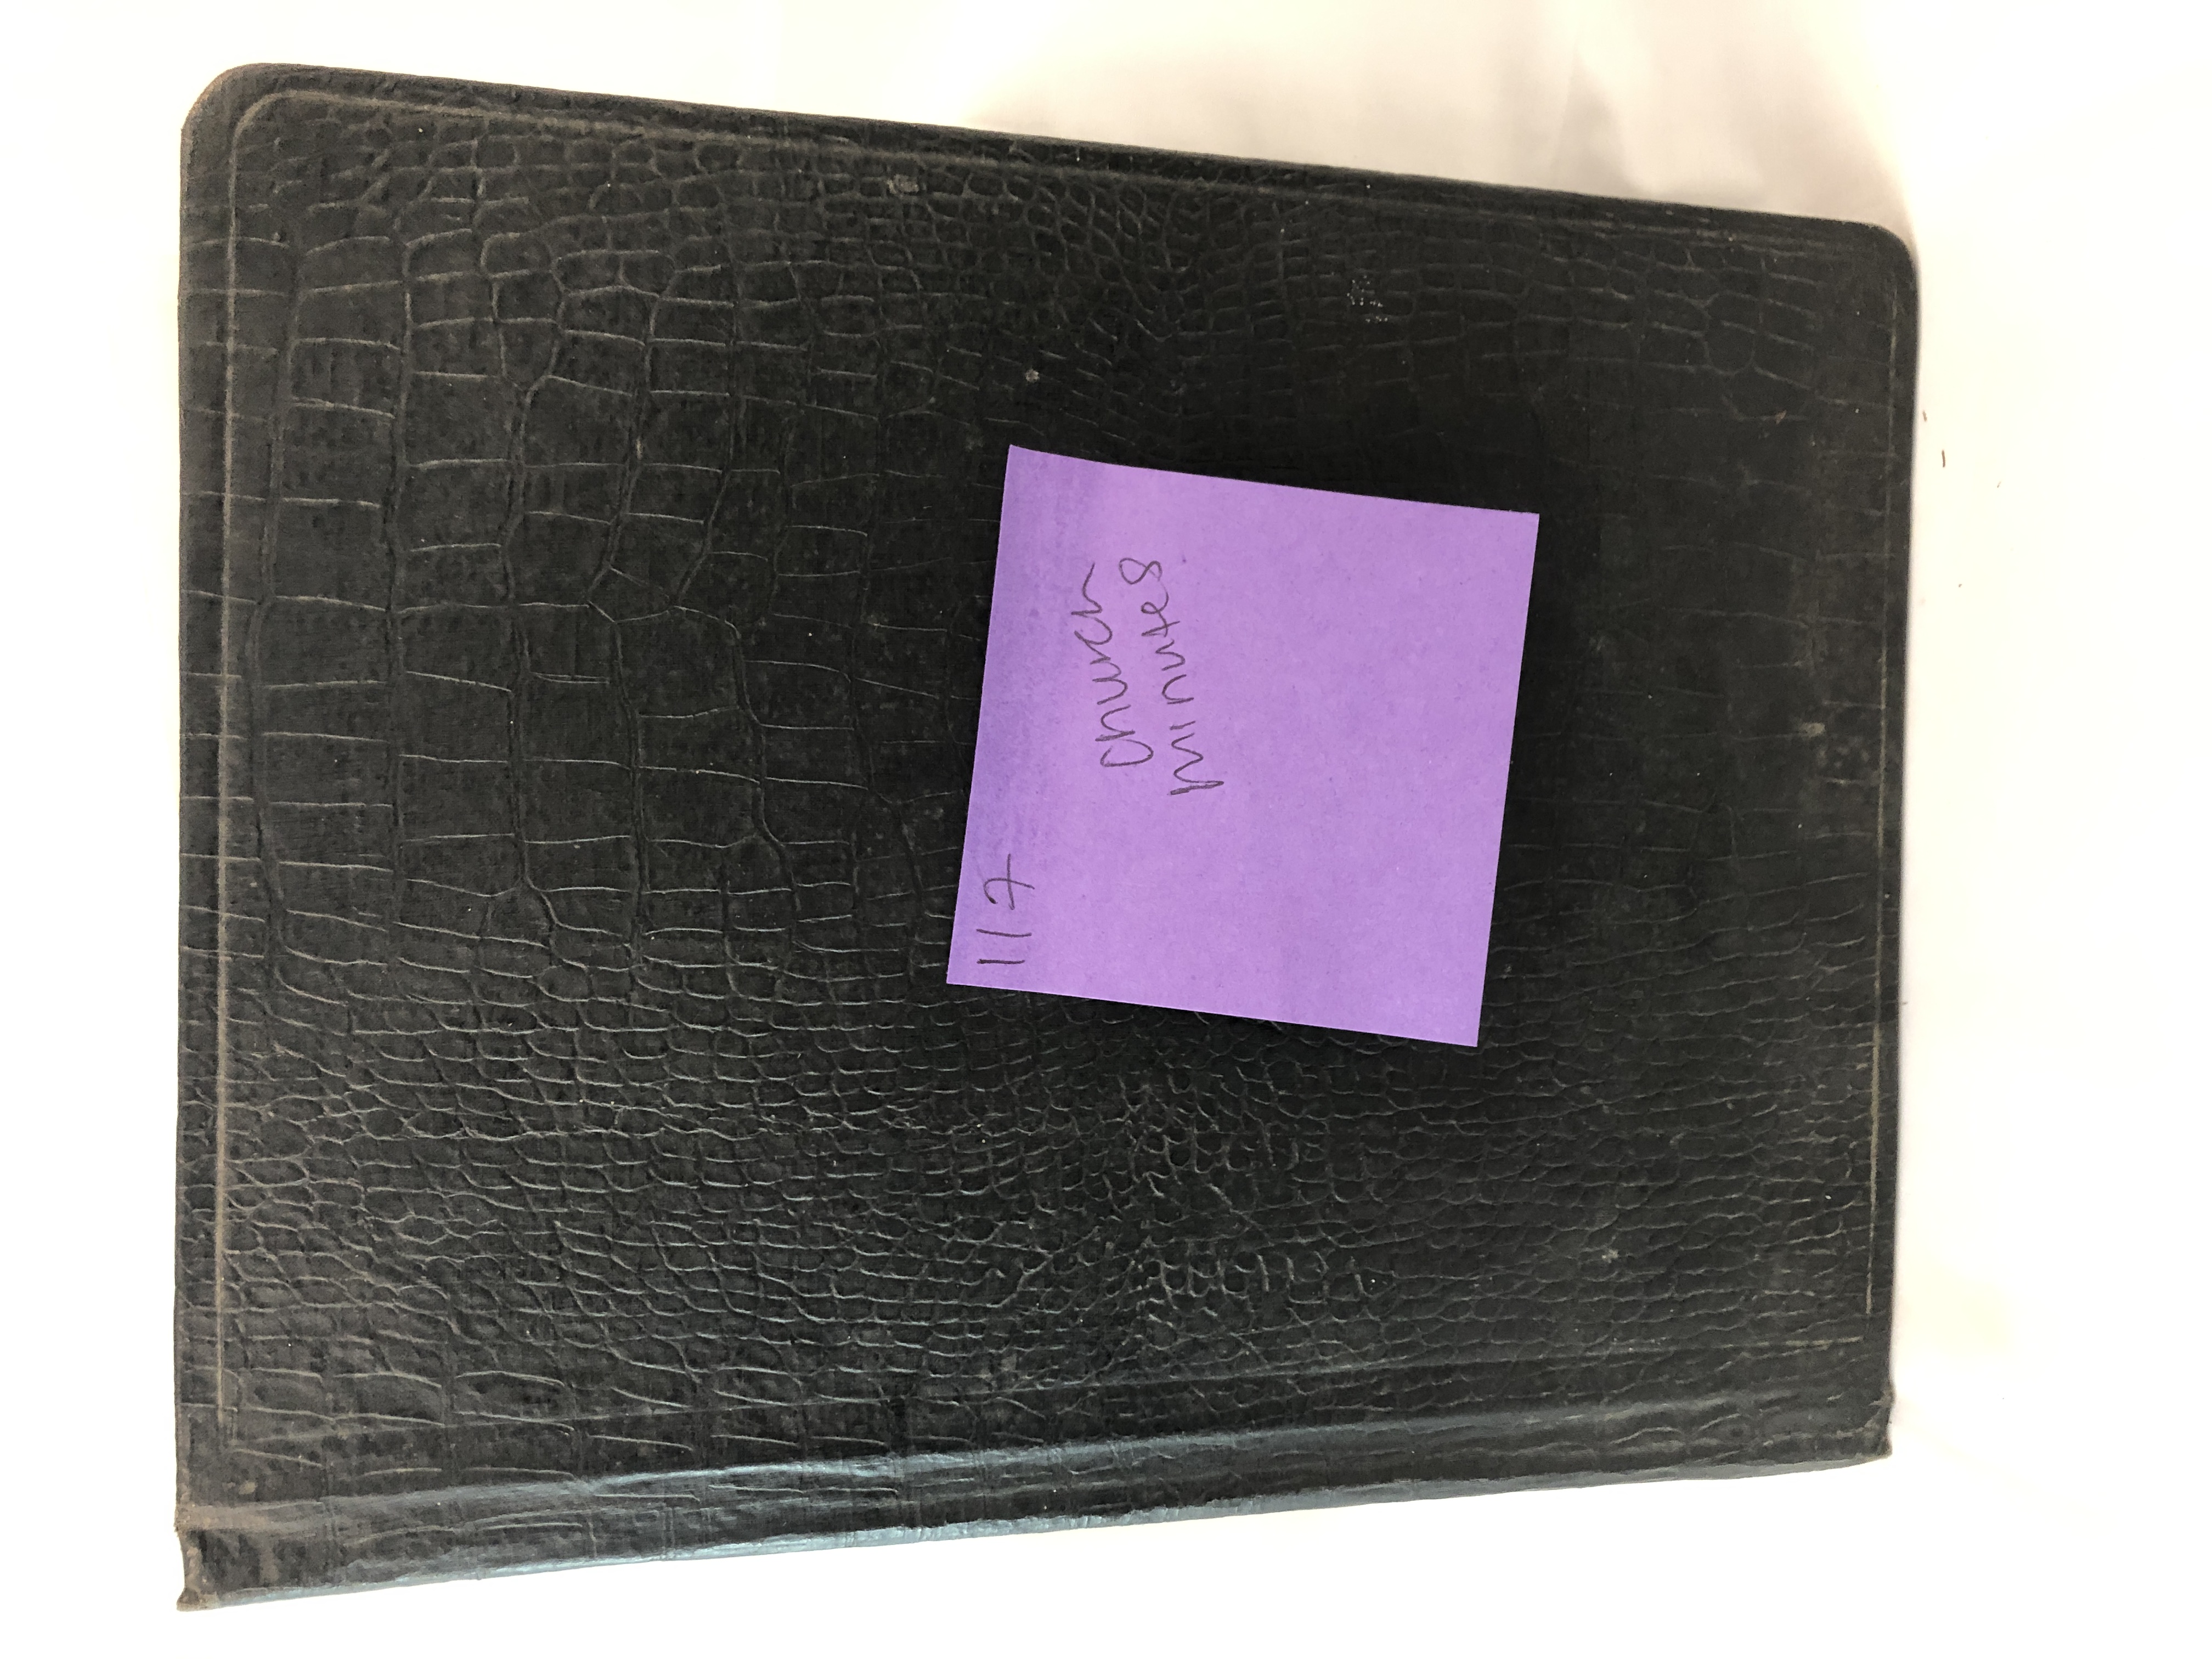 117
church
minutes